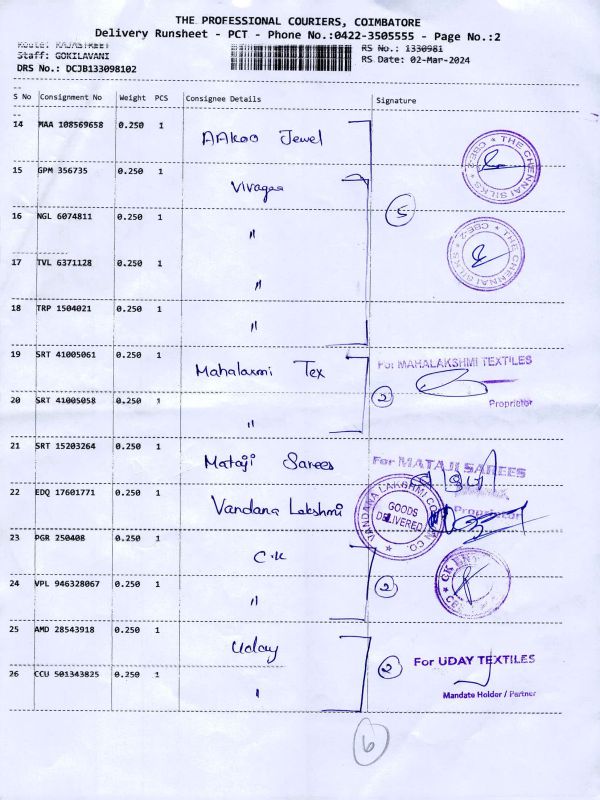 THE PROFESSIONAL COURIERS, COIMBATORE
Delivery Runsheet - PCT - Phone No.:0422-3505555 - Page No.:2
Route: RAJASTREET RS No.: 1330981
Staff: GOKILAVANI RS Date: 02-Mar-2024
DRS No.: DCJB133098102
S No Consignment No Weight PCS Consignee Details Signature
14 MAA 108569658 0.250 1 AAkoo Jewel
THE CHENNAI SILKS * CBE-2 *
15 GPM 356735 0.250 1 Viragaa
5
16 NGL 6074811 0.250 1 "
THE CHENNAI SILKS * CBE-2 *
17 TVL 6371128 0.250 1 "
18 TRP 1504021 0.250 1 "
19 SRT 41005061 0.250 1 Mahalaxmi Tex
For MAHALAKSHMI TEXTILES
20 SRT 41005058 0.250 1 "
2
Proprietor
21 SRT 15203264 0.250 1 Mataji Sarees
For MATAJI SAREES
Proprietor
22 EDQ 17601771 0.250 1 Vandana Lakshmi
VANDANA LAKSHMI COTTON CO.
GOODS
DELIVERED
23 PGR 250408 0.250 1 C.K
24 VPL 946328067 0.250 1 "
2
25 AMD 28543918 0.250 1 Uday
2 For UDAY TEXTILES
26 CCU 501343825 0.250 1 "
Mandate Holder / Partner
6